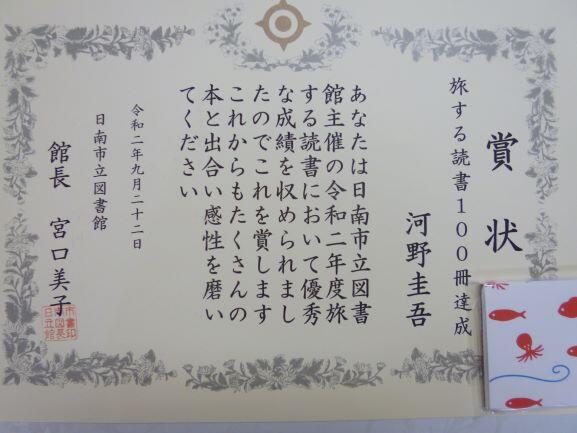 賞状
旅する読書100冊達成
河野圭吾
あなたは日南市立図書
館主催の令和二年度旅
する読書において優秀
な成績を収められまし
たのでこれを賞します
これからもたくさんの
本と出合い感性を磨い
てください
令和二年九月二十二日
日南市立図書館
館長 宮口美子